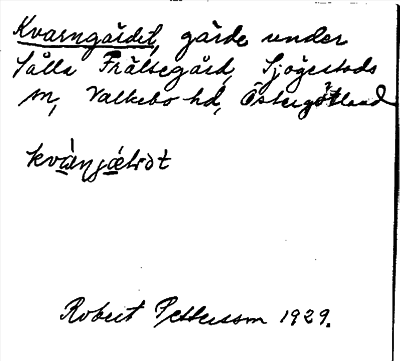 Kvarngärdet, gärde under
Sålla Frälsegård, Sjögestads
sn, Valkebo hd, Östergötland
kvànjǽḷṛǝt
Robert Pettersson 1929.